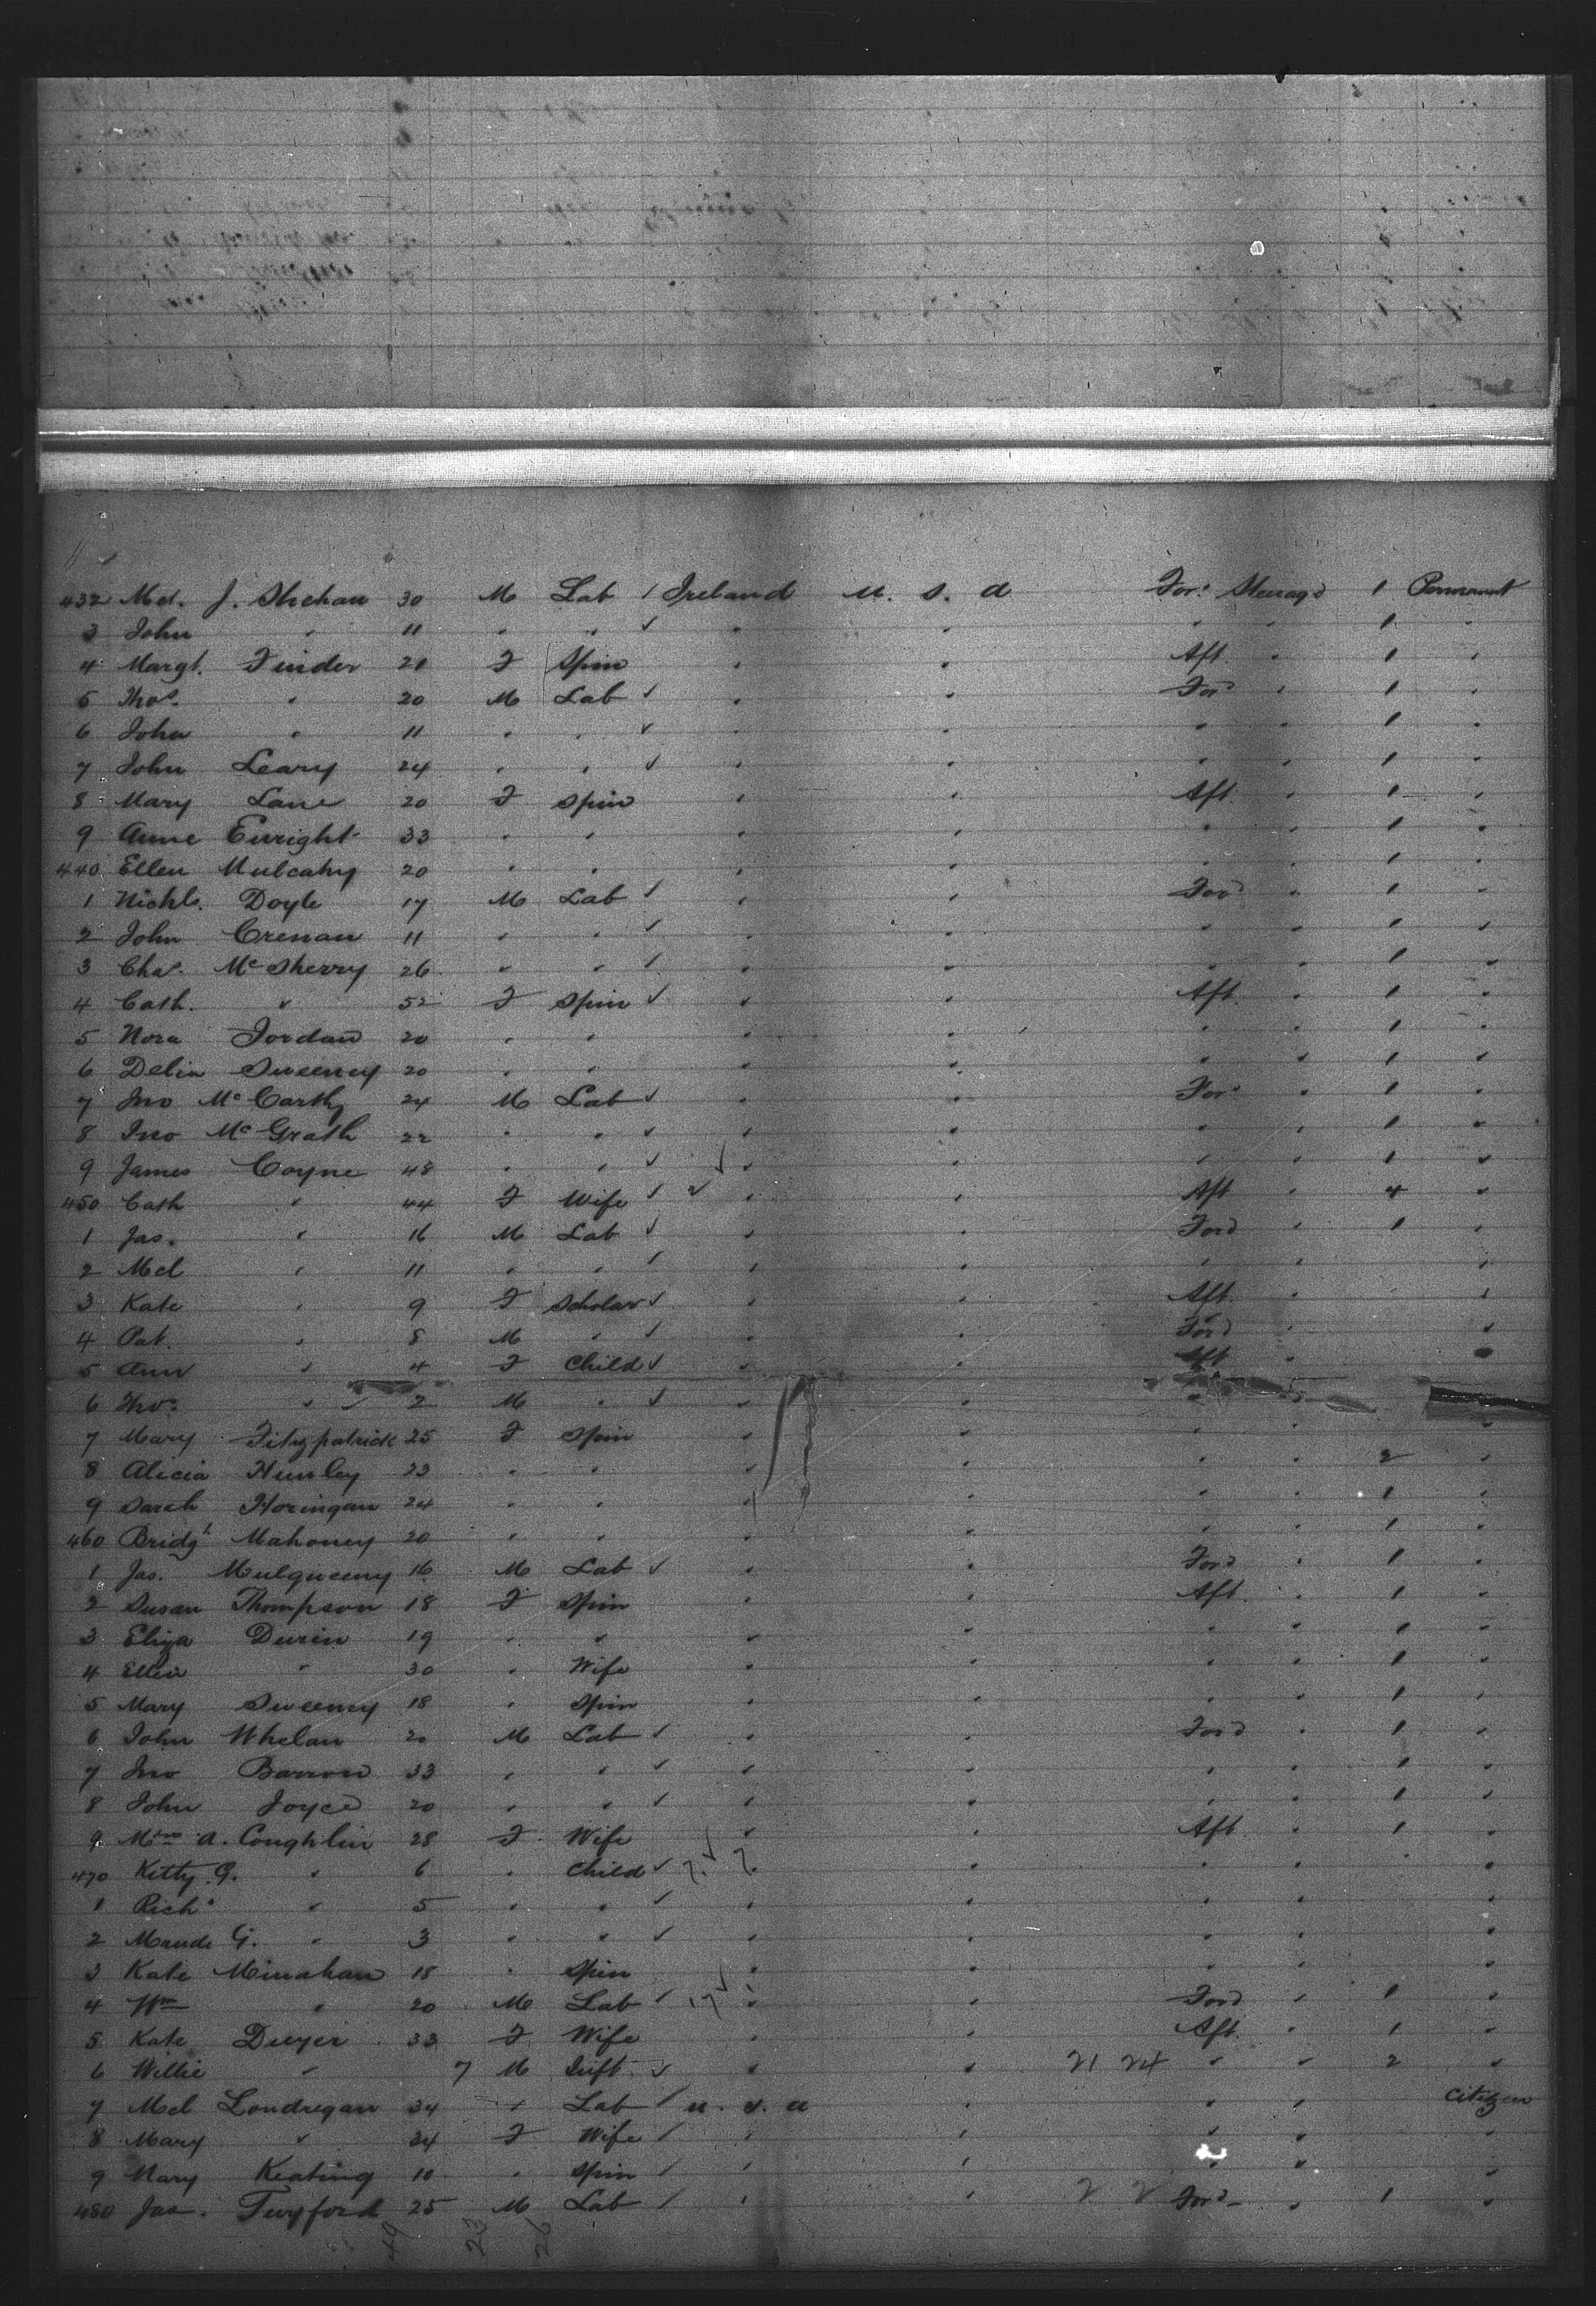 432 Mcl. J. Shehan 30 M Lab Ireland U. S. A For. Steerage 1 Permanent
3 John " 11 " " " " " " 1 "
4 Margt. Finder 21 F Spin " " Aft " 1 "
5 Thos. " 20 M Lab " " Ford " 1 "
6 John " 11 " " " " " " 1 "
7 John Leary 24 " " " " " " 1 "
8 Mary Lane 20 F Spin " " Aft. " 1 "
9 Anne Enright 33 " " " " " " 1 "
440 Ellen Mulcahy 20 " " " " " " 1 "
1 Nichls. Doyle 17 M Lab " " Ford " 1 "
2 John Crenan 11 " " " " " " 1 "
3 Chas. McSherry 26 " " " " " " 1 "
4 Cath. " 52 F Spin " " Aft. " 1 "
5 Nora Jordan 20 " " " " " " 1 "
6 Delia Sweeney 20 " " " " " " 1 "
7 Jno McCarthy 24 M Lab " " For. " 1 "
8 Jno McGrath 22 " " " " " " 1 "
9 James Coyne 48 " " " " " " 1 "
450 Cath " 44 F Wife " " Aft " 4 "
1 Jas. " 16 M Lab " " Ford " 1 "
2 Mcl " 11 " " " " " " "
3 Kate " 9 F Scholar " " Aft. " "
4 Pat. " 8 M " " " Ford " "
5 Ann " 4 F Child " " Aft "
6 Thos. " 2 M " " " " "
7 Mary Fitzpatrick 25 F Spin " " " "
8 Alicia Hunley 23 " " " " " " 2 "
9 Sarah Horingan 24 " " " " " " 1 "
460 Bridgt Mahoney 20 " " " " " " 1 "
1 Jas. Mulqueeny 16 M Lab " " Ford " 1 "
2 Susan Thompson 18 F Spin " " Aft. " 1 "
3 Eliza Durin 19 " " " " " " 1 "
4 Ellen " 30 " Wife " " " " 1 "
5 Mary Sweeney 18 " Spin " " " " 1 "
6 John Whelan 20 M Lab " " Ford " 1 "
7 Jno Barron 33 " " " " " " 1 "
8 John Joyce 20 " " " " " " 1 "
9 A. Coughlin 28 F Wife " " Aft. " 1 "
470 Kitty G. " 6 " Child " " " " "
1 Richd " 5 " " " " " " "
2 Maude G. " 3 " " " " " " "
3 Kate Minahan 18 " Spin " " " " "
4 Wm " 20 M Lab 17 " " Ford " 1 "
5 Kate Dwyer 33 F Wife " " Aft. " 1 "
6 Willie " 7 M " " 21 24 " " 2 "
7 Mcl Londregan 34 " Lab U. S. A " " " Citizen
8 Mary " 24 F Wife " " " " "
9 Mary Keating 10 " Spin " " " " "
480 Jas. Twyford 25 M Lab " " 2 2 Ford " 1 "
49 23 26